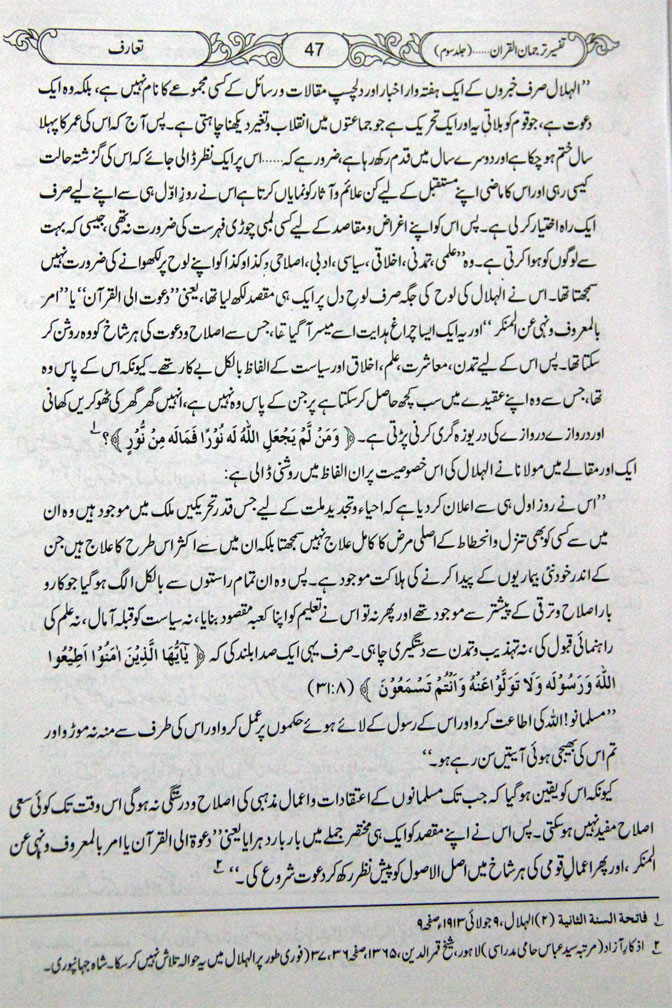 تفسیر ترجمان القرآن......(جلد سوم)
47
تعارف
"الہلال صرف خبروں کے ایک ہفتہ وار اخبار اور دلچسپ مقالات و رسائل کے کسی مجموعے کا نام نہیں ہے، بلکہ وہ ایک
دعوت ہے، جو قوم کو بلاتی ہے اور ایک تحریک ہے جو جماعتوں میں انقلاب و تغیر دیکھنا چاہتی ہے۔ پس آج کہ اس کی عمر کا پہلا
سال ختم ہو چکا ہے اور دوسرے سال میں قدم رکھ رہا ہے، ضرور ہے کہ......اس پر ایک نظر ڈالی جائے کہ اس کی گزشتہ حالت
کیسی رہی اور اس کا ماضی اپنے مستقبل کے لیے کن علائم و آثار کو نمایاں کرتا ہے اس نے روز اوّل ہی سے اپنے لیے صرف
ایک راہ اختیار کر لی ہے۔ پس اس کو اپنے اغراض و مقاصد کے لیے کسی لمبی چوڑی فہرست کی ضرورت نہ تھی، جیسی کہ بہت
سے لوگوں کو ہوا کرتی ہے۔ وہ "علمی، تمدنی، اخلاقی، سیاسی، ادبی، اصلاحی وکذا وکذا کو اپنے لوح پر لکھوانے کی ضرورت نہیں
سمجھتا تھا۔ اس نے الہلال کی لوح کی جگہ صرف لوحِ دل پر ایک ہی مقصد لکھ لیا تھا، یعنی "دعوت الی القرآن" یا "امر
بالمعروف و نہی عن المنکر" اور یہ ایک ایسا چراغ ہدایت اسے میسر آ گیا تھا، جس سے اصلاح و دعوت کی ہر شاخ کو وہ روشن کر
سکتا تھا۔ پس اس کے لیے تمدن، معاشرت، علم، اخلاق اور سیاست کے الفاظ بالکل بے کار تھے۔ کیونکہ اس کے پاس وہ
تھا، جس سے وہ اپنے عقیدے میں سب کچھ حاصل کر سکتا ہے پر جن کے پاس وہ نہیں ہے، انہیں گھر گھر کی ٹھوکریں کھانی
اور دروازے دروازے کی دریوزہ گری کرنی پڑتی ہے۔ ﴿ وَمَنْ لَّمْ یَجْعَلِ اللّٰهُ لَه نُوْرًا فَمَالَه مِنْ نُّوْرٍ ﴾؟" ۱
ایک اور مقالے میں مولانا نے الہلال کی اس خصوصیت پر ان الفاظ میں روشنی ڈالی ہے:
"اس نے روز اول ہی سے اعلان کر دیا ہے کہ احیاء و تجدید ملت کے لیے جس قدر تحریکیں ملک میں موجود ہیں وہ ان
میں سے کسی کو بھی تنزل و انحطاط کے اصلی مرض کا کامل علاج نہیں سمجھتا بلکہ ان میں سے اکثر اس طرح کا علاج ہیں جن
کے اندر خود نئی بیماریوں کے پیدا کرنے کی ہلاکت موجود ہے۔ پس وہ ان تمام راستوں سے بالکل الگ ہو گیا جو کارو
بار اصلاح و ترقی کے پیشتر سے موجود تھے اور پھر نہ تو اس نے تعلیم کو اپنا کعبہ مقصود بنایا، نہ سیاست کو قبلہ آمال، نہ علم کی
راہنمائی قبول کی، نہ تہذیب و تمدن سے دستگیری چاہی۔ صرف یہی ایک صدا بلند کی کہ ﴿ یٰٓاَیُّهَا الَّذِیْنَ اٰمَنُوْا اَطِیْعُوا
اللّٰهَ وَرَسُوْلَه وَلَا تَوَلَّوْا عَنْهُ وَاَنْتُمْ تَسْمَعُوْنَ ﴾ (۳۱:۸)
"مسلمانو! اللہ کی اطاعت کرو اور اس کے رسول کے لائے ہوئے حکموں پر عمل کرو اور اس کی طرف سے منہ نہ موڑو اور
تم اس کی بھیجی ہوئی آیتیں سن رہے ہو۔"
کیونکہ اس کو یقین ہو گیا کہ جب تک مسلمانوں کے اعتقادات و اعمال مذہبی کی اصلاح و درستگی نہ ہو گی اس وقت تک کوئی سعی
اصلاح مفید نہیں ہو سکتی۔ پس اس نے اپنے مقصد کو ایک ہی مختصر جملے میں بار بار دہرایا یعنی "دعوۃ الی القرآن یا امر بالمعروف و نہی عن
المنکر، اور پھر اعمالِ قومی کی ہر شاخ میں اصل الاصول کو پیش نظر رکھ کر دعوت شروع کی۔" ۲
۱ فاتحة السنة الثانیة (۲) الہلال، ۹ جولائی ۱۹۱۳ء صفحہ ۹
۲ اذکار آزاد (مرتبہ سید عباس حامی مدراسی) لاہور، شیخ قمر الدین، ۱۳۶۵، صفحہ ۳۶، ۳۷ (فوری طور پر الہلال میں یہ حوالہ تلاش نہیں کر سکا۔ شاہ جہانپوری۔